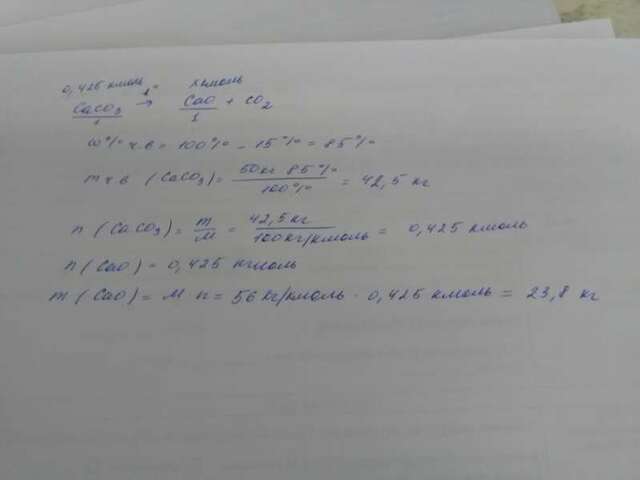 0,425 кмоль t° Xкмоль
CaCO₃ → CaO + CO₂
1 1
ω% ч.в = 100% - 15% = 85%
m ч.в (CaCO₃) = 50кг · 85% / 100% = 42,5 кг
n (CaCO₃) = m / M = 42,5 кг / 100 кг/кмоль = 0,425 кмоль
n (CaO) = 0,425 кмоль
m (CaO) = M n = 56 кг/кмоль · 0,425 кмоль = 23,8 кг